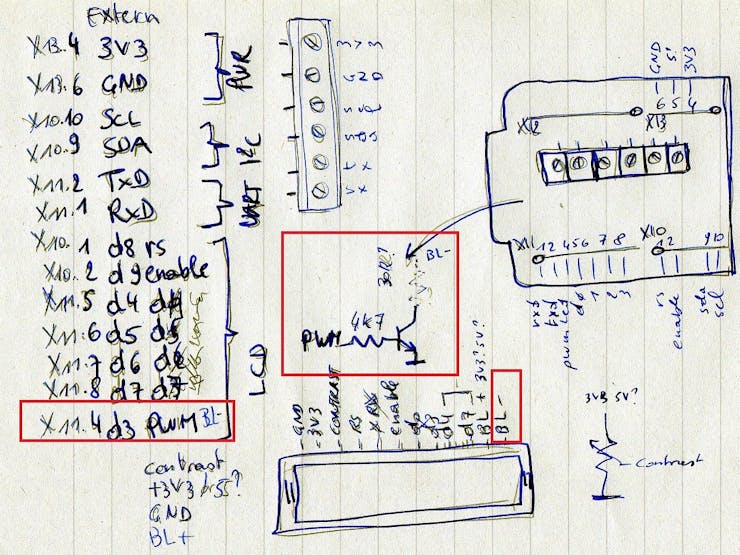 Extern
X13.4 3V3
X13.6 GND
X10.10 SCL
X10.9 SDA
X11.2 TxD
X11.1 RxD
X10.1 d8 rs
X10.2 d9 enable
X11.5 d4
X11.6 d5
X11.7 d6
X11.8 d7
X11.4 d3 PWM BL-
PWR
I2C
UART
LCD
contrast
+3V3 or 5V?
GND
BL+
3V3
GND
SCL
SDA
TX
RX
BL-
30R?
4K7
PWM
GND
3V3
CONTRAST
RS
enable
d4
d7
BL + 3V3? 5V?
BL-
GND
5V
3V3
6 5 4
X12
X13
X11
1 2 4 5 6 7 8
X10
1 2
9 10
rxd
txd
pwm
rs
enable
sda
scl
3V3 5V?
contrast